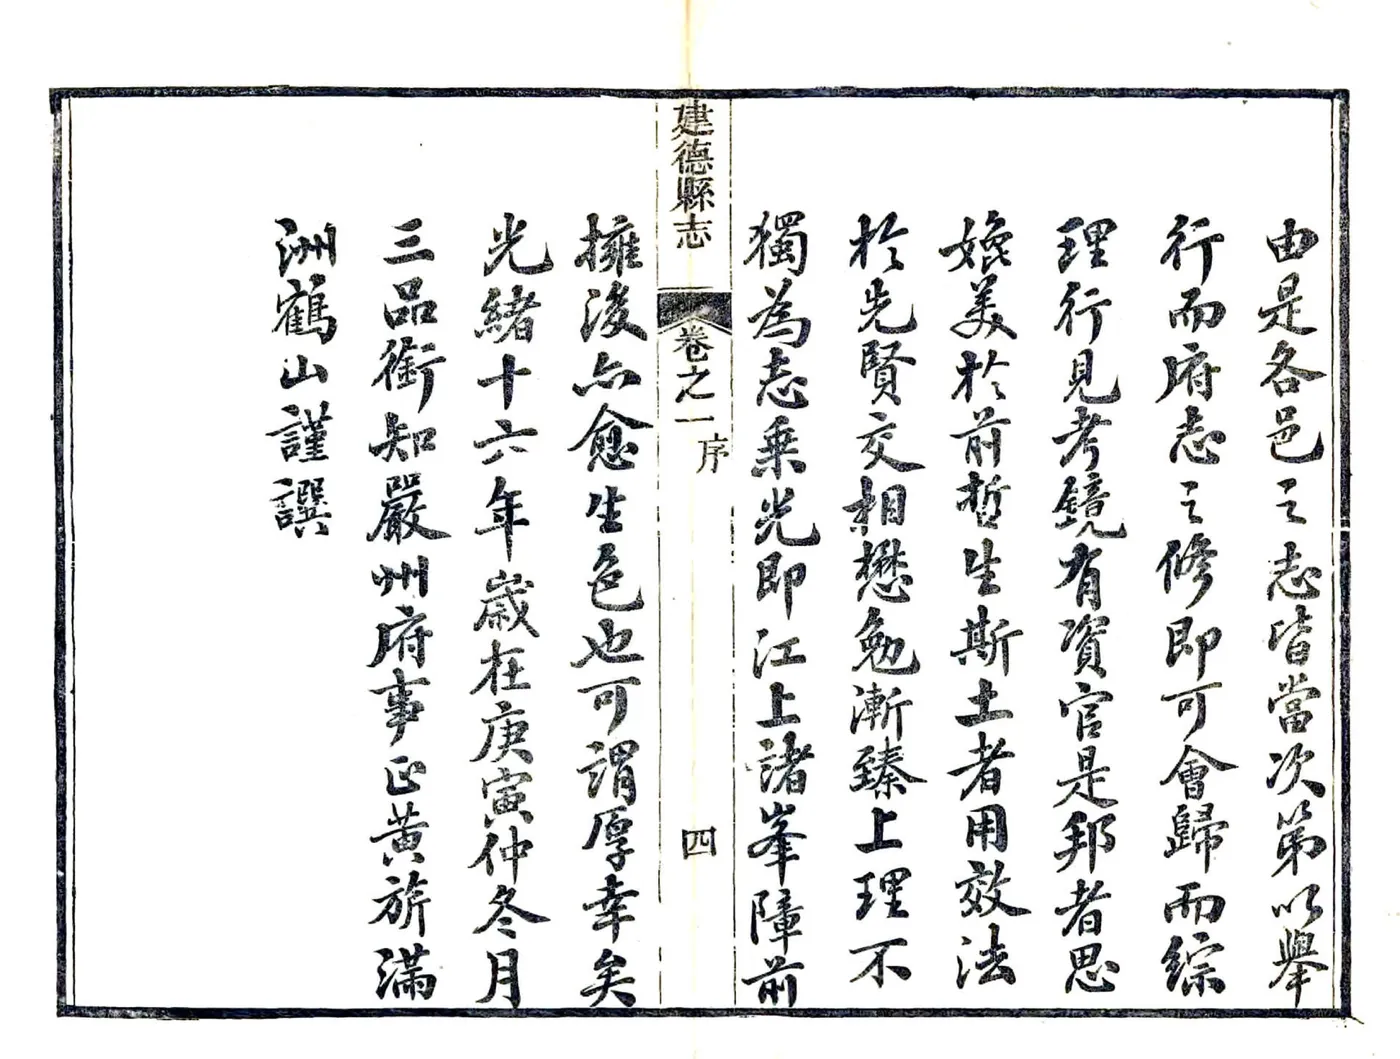 由是各邑之志皆當次第以舉
行而府志之修即可會歸而綜
理行見考鏡有資官是邦者思
媲美於前哲生斯土者用效法
於先賢交相懋勉漸臻上理不
獨為志乘光即江上諸峯障前
建德縣志
卷之一
序
四
擁後亦愈生色也可謂厚幸矣
光緒十六年歲在庚寅仲冬月
三品銜知嚴州府事正黃旂滿
洲鶴山謹譔